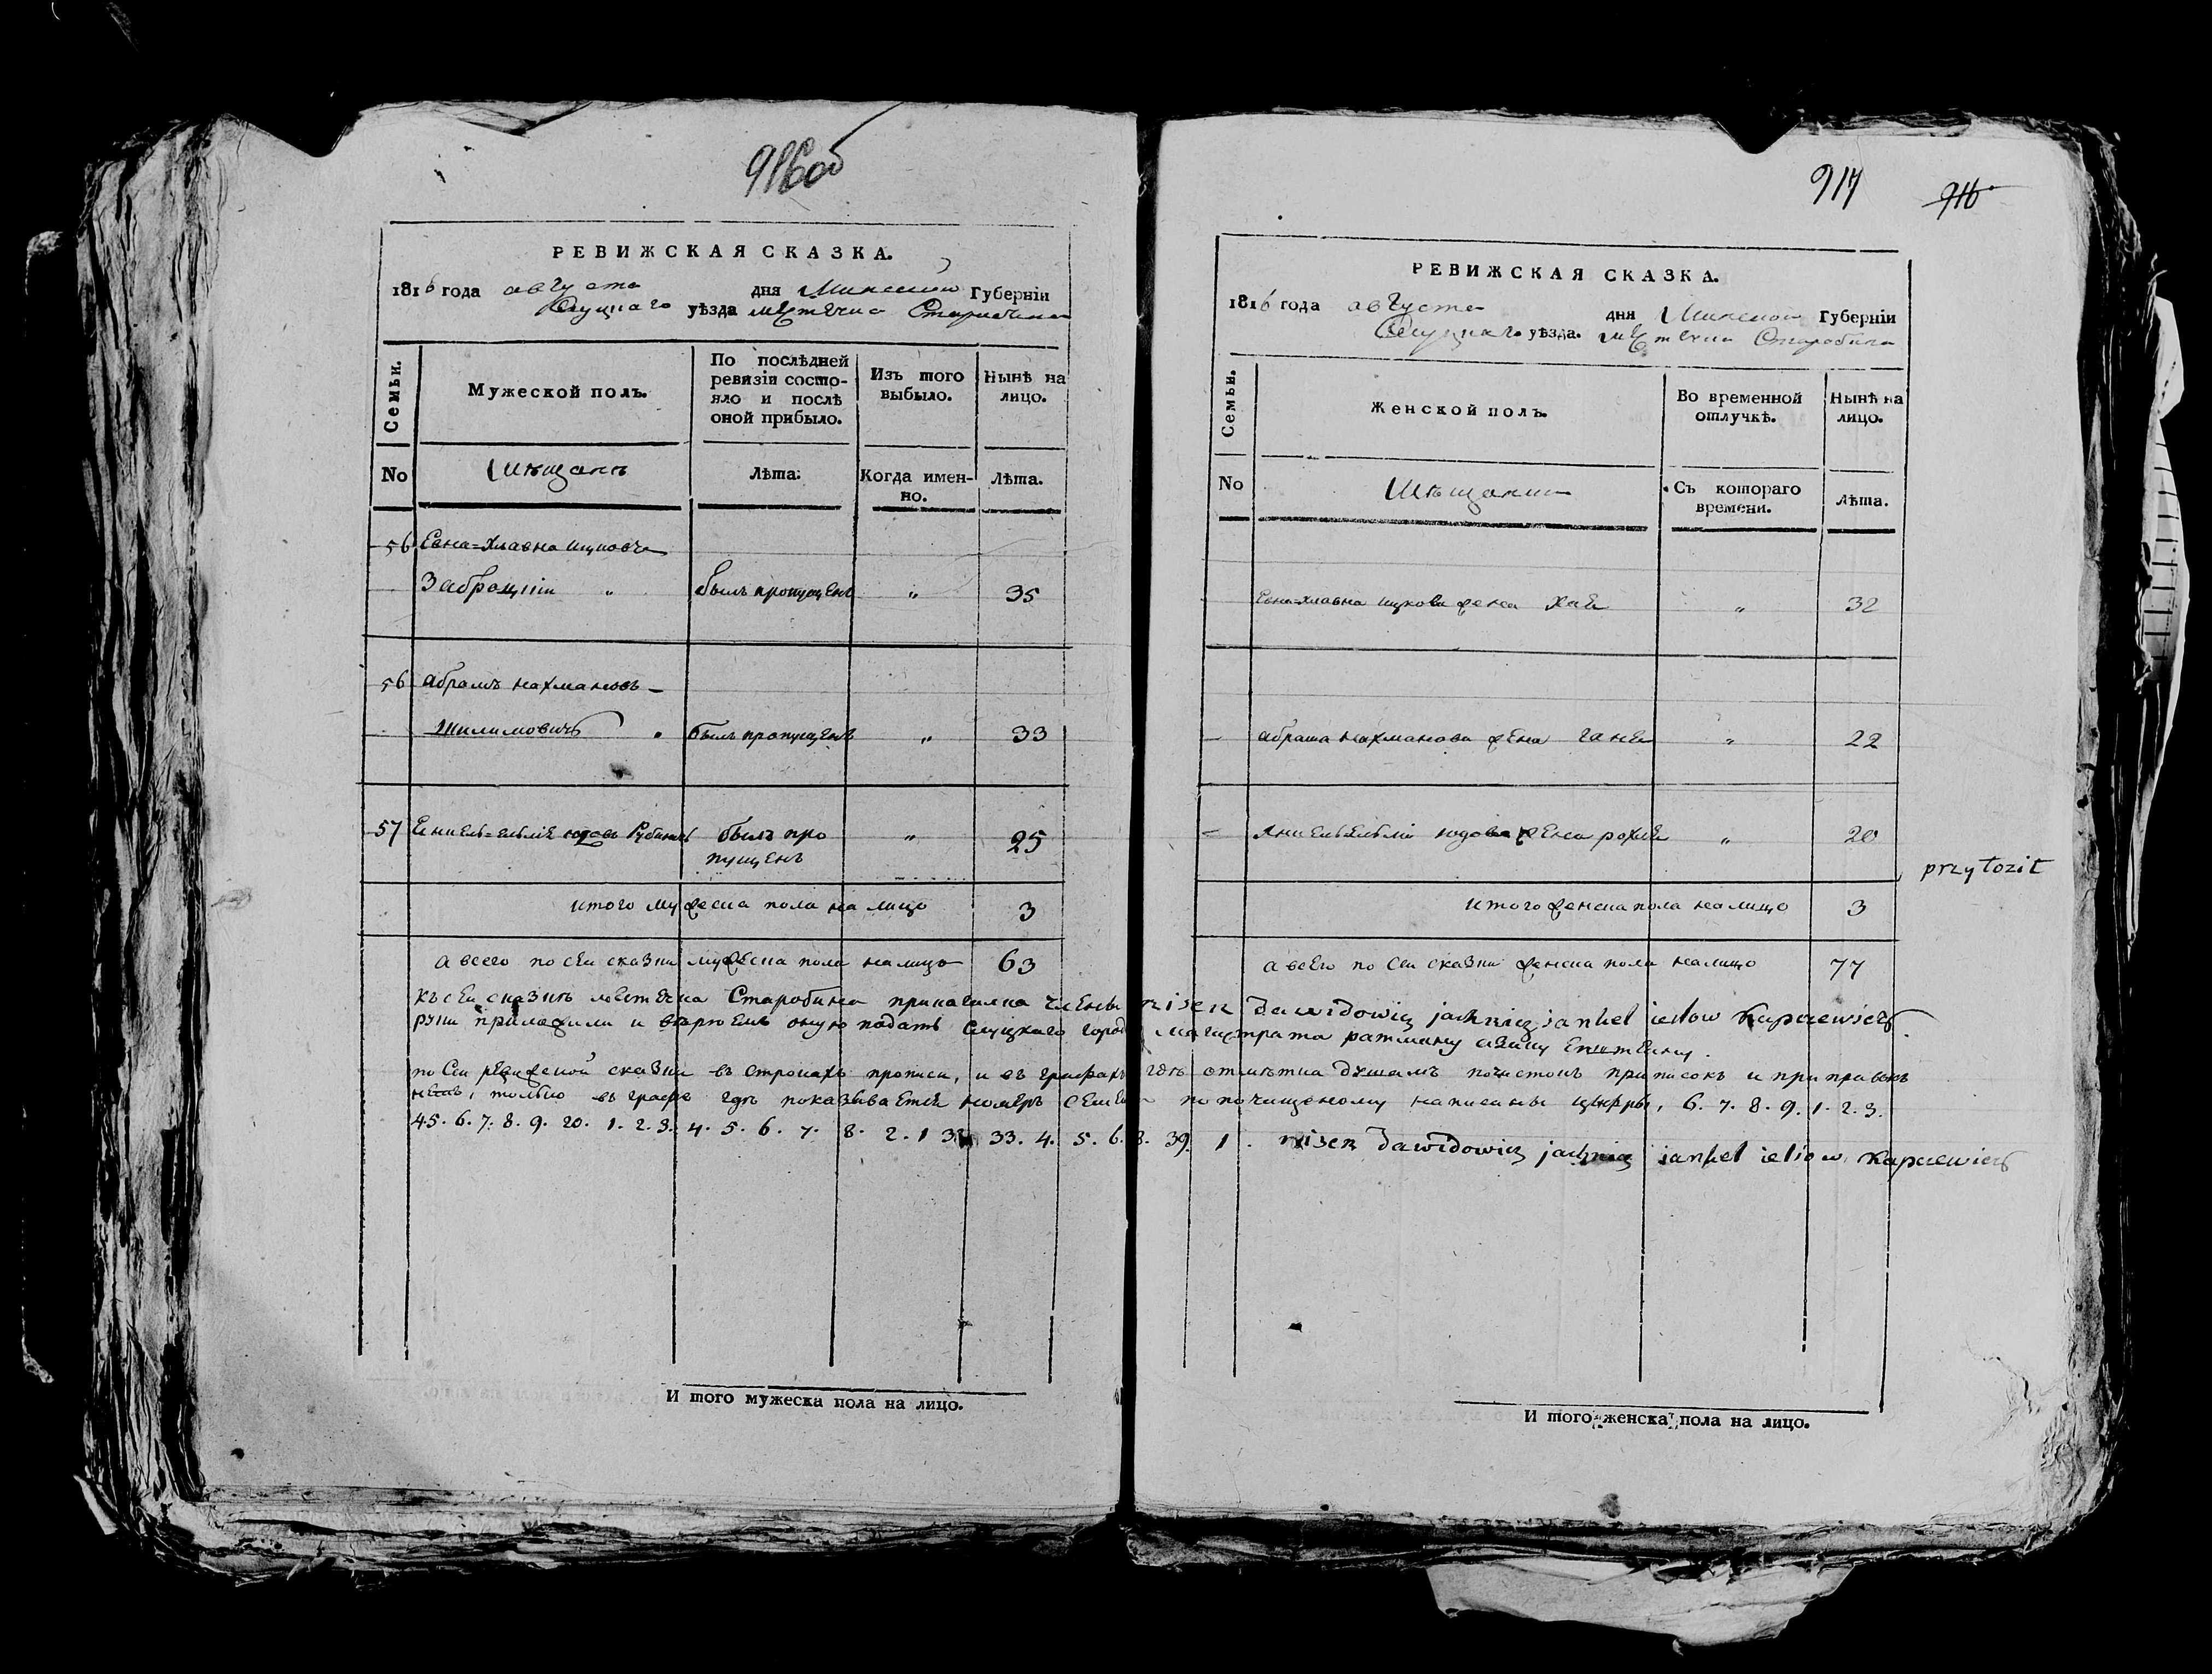 916об
РЕВИЖСКАЯ СКАЗКА.
1816 года августа дня Минской Губерніи
Слуцкаго уѣзда местечка Старобина
Семьи.
Мужеской полъ.
По послѣдней ревизіи состояло и послѣ оной прибыло.
Изъ того выбыло.
Нынѣ на лицо.
No
Мѣщанъ
Лѣта.
Когда именно.
Лѣта.
56 Евна-Хлавна Ицковъ
был пропущенъ " 35
56 Абрамъ Нахмановъ
Шилимовичъ был пропущенъ " 33
57 Юдовъ Рубинъ былъ про " 25
пущенъ
итого мужеска пола на лицо 3
а всего по сеи сказки мужеска пола налицо 63
917
916
РЕВИЖСКАЯ СКАЗКА.
1816 года августа дня Минской Губерніи
Слуцкаго уѣзда. местечки Старобина
Семьи.
Женской полъ.
Во временной отлучкѣ.
Нынѣ на лицо.
No
Мѣщанки
Съ котораго времени.
Лѣта.
Евна-хлавна ицкова жена Хая " 32
абрама нахманова жена ганя " 22
юдова жена рохля " 20
przytozit
итого женска пола на лицо 3
а всего по сеи сказки женска пола налицо 77
къ сеи сказкѣ местечка Старобина кагална члены nisen Dawidowicz jachnicz jankel ielow Kaplewicz
руки приложили и веръ оную подать слуцкаго город магистрата ратману
по сеи ревижской сказки въ строкахъ прописи, и въ графахъ гдѣ отмѣтка душамъ почистокъ приписокъ и приправокъ
нетъ, только въ графѣ гдѣ показывается номеръ семеи по почищеному написаны цыфры, 6. 7. 8. 9. 1. 2. 3.
45. 6. 7. 8. 9. 20. 1. 2. 3. 4. 5. 6. 7. 8. 2. 1 33. 4. 5. 6. 8. 39. 1. nisen Dawidowicz jachnicz jankel ieliow Kaplewicz
И того мужеска пола на лицо.
И того женска пола на лицо.